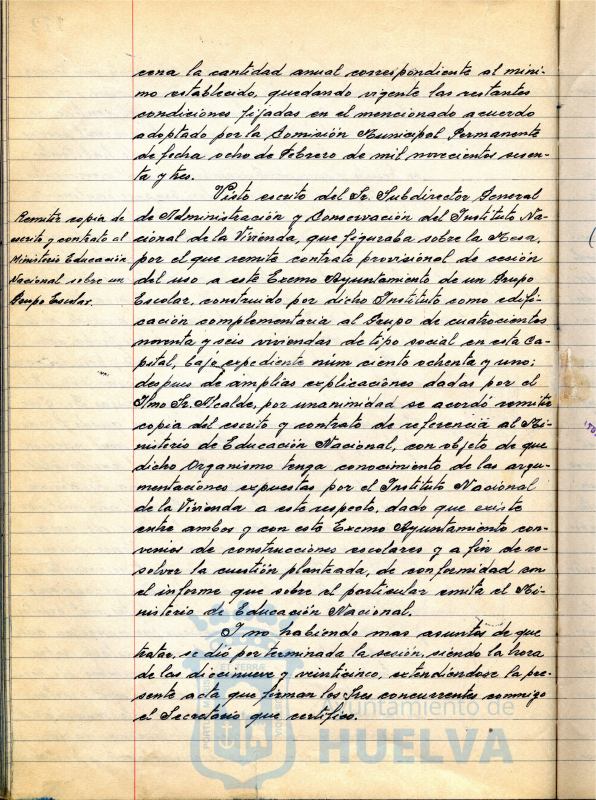 cena la cantidad anual correspondiente al míni-
mo establecido, quedando vigente las restantes
condiciones fijadas en el mencionado acuerdo
adoptado por la Comisión Municipal Permanente
de fecha ocho de Febrero de mil novecientos sesen-
ta y tres.
Visto escrito del Sr. Subdirector General
de Administración y Conservación del Instituto Na-
cional de la Vivienda, que figuraba sobre la Mesa,
por el que remite contrato provisional de cesión
del uso a este Excmo Ayuntamiento de un Grupo
Escolar, construido por dicho Instituto como edifi-
cación complementaria al Grupo de cuatrocientos
noventa y seis viviendas de tipo social en esta Ca-
pital, bajo expediente núm ciento ochenta y uno;
despues de amplias explicaciones dadas por el
Ilmo Sr. Alcalde, por unanimidad se acordó remitir
copia del escrito y contrato de referencia al Mi-
nisterio de Educación Nacional, con objeto de que
dicho Organismo tenga conocimiento de las argu-
mentaciones expuestas por el Instituto Nacional
de la Vivienda a este respecto, dado que existe
entre ambos y con este Excmo Ayuntamiento con-
venios de construcciones escolares y a fin de re-
solver la cuestión planteada, de conformidad con
el informe que sobre el particular emita el Mi-
nisterio de Educación Nacional.
Y no habiendo mas asuntos de que
tratar, se dió por terminada la sesión, siendo la hora
de las diecinueve y veinticinco, extendiéndose la pre-
sente acta que firman los Sres concurrentes conmigo
el Secretario que certifico.
Remitir copia de
escrito y contrato al
Ministerio Educación
Nacional sobre un
Grupo Escolar.
Ayuntamiento de
HUELVA